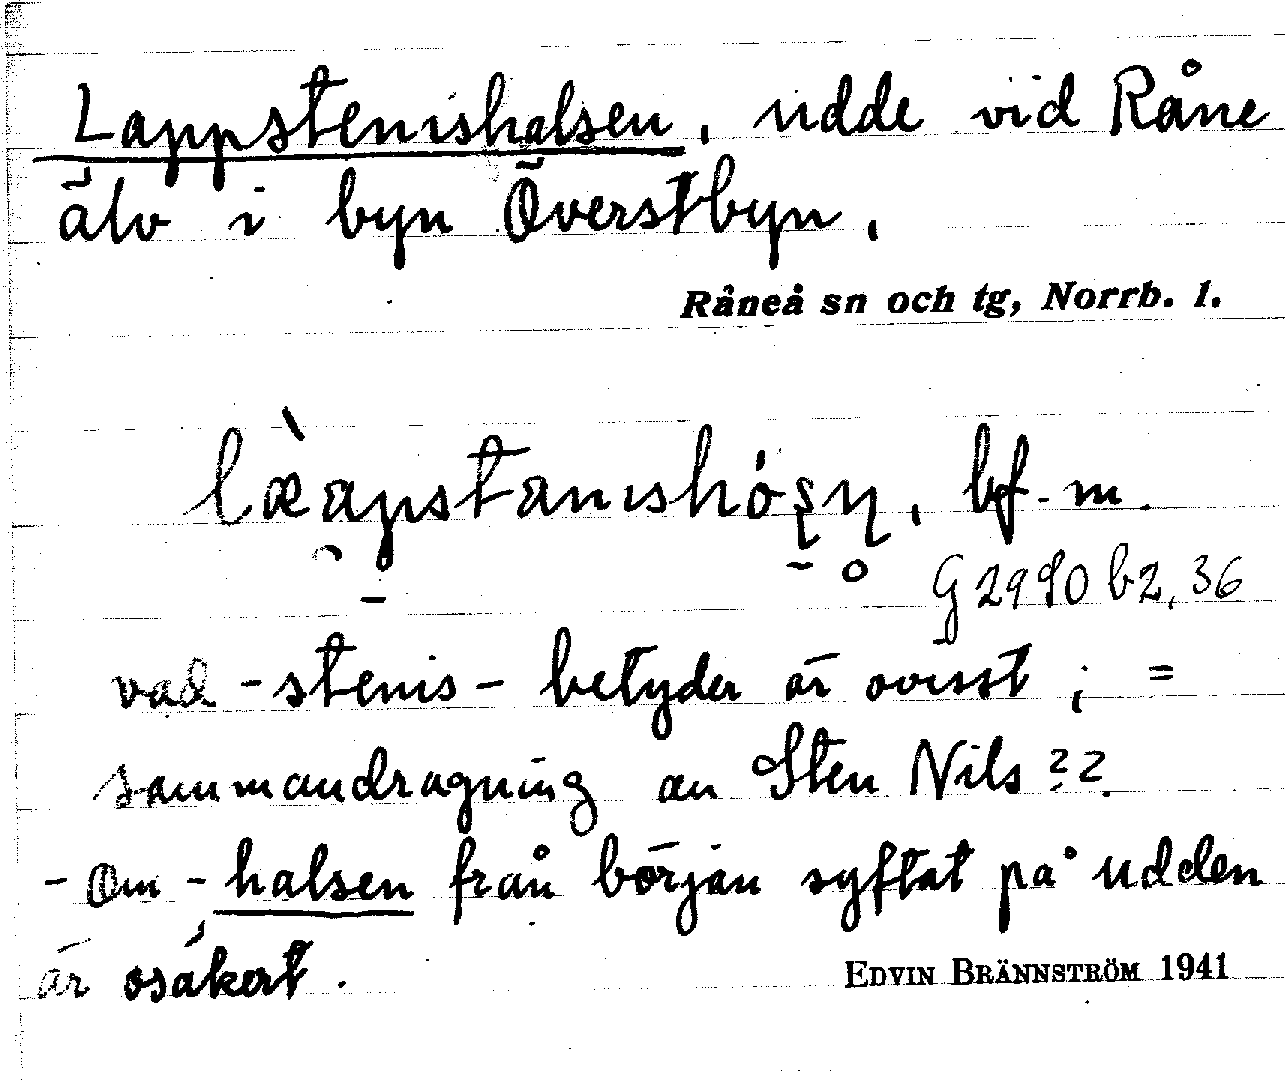 Lappstenishalsen, udde vid Råne
älv i byn Överstbyn.
Råneå sn och tg, Norrb. l.
bf. m.
G 2990 b2, 36
vad -stenis- betyder är ovisst ; =
sammandragning av Sten Nils ??
- Om -halsen från början syftat på udden
är osäkert.
EDVIN BRÄNNSTRÖM 1941